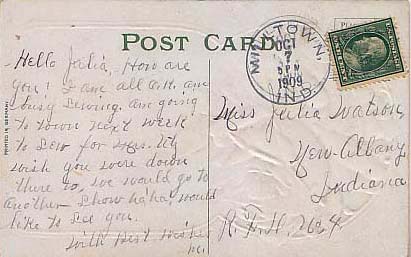 POST CARD
MILLTOWN,
OCT
7
5 PM
1909
IND.
PRINTED IN GERMANY
Hello Julia, How are
you? I am all O.K. am
busy sewing. am going
to town next week
to sew for Mrs.
wish you were down
there so we would go to
another show ha ha would
like to see you.
With Best Wishes
Miss Julia Watson,
New Albany
Indiana